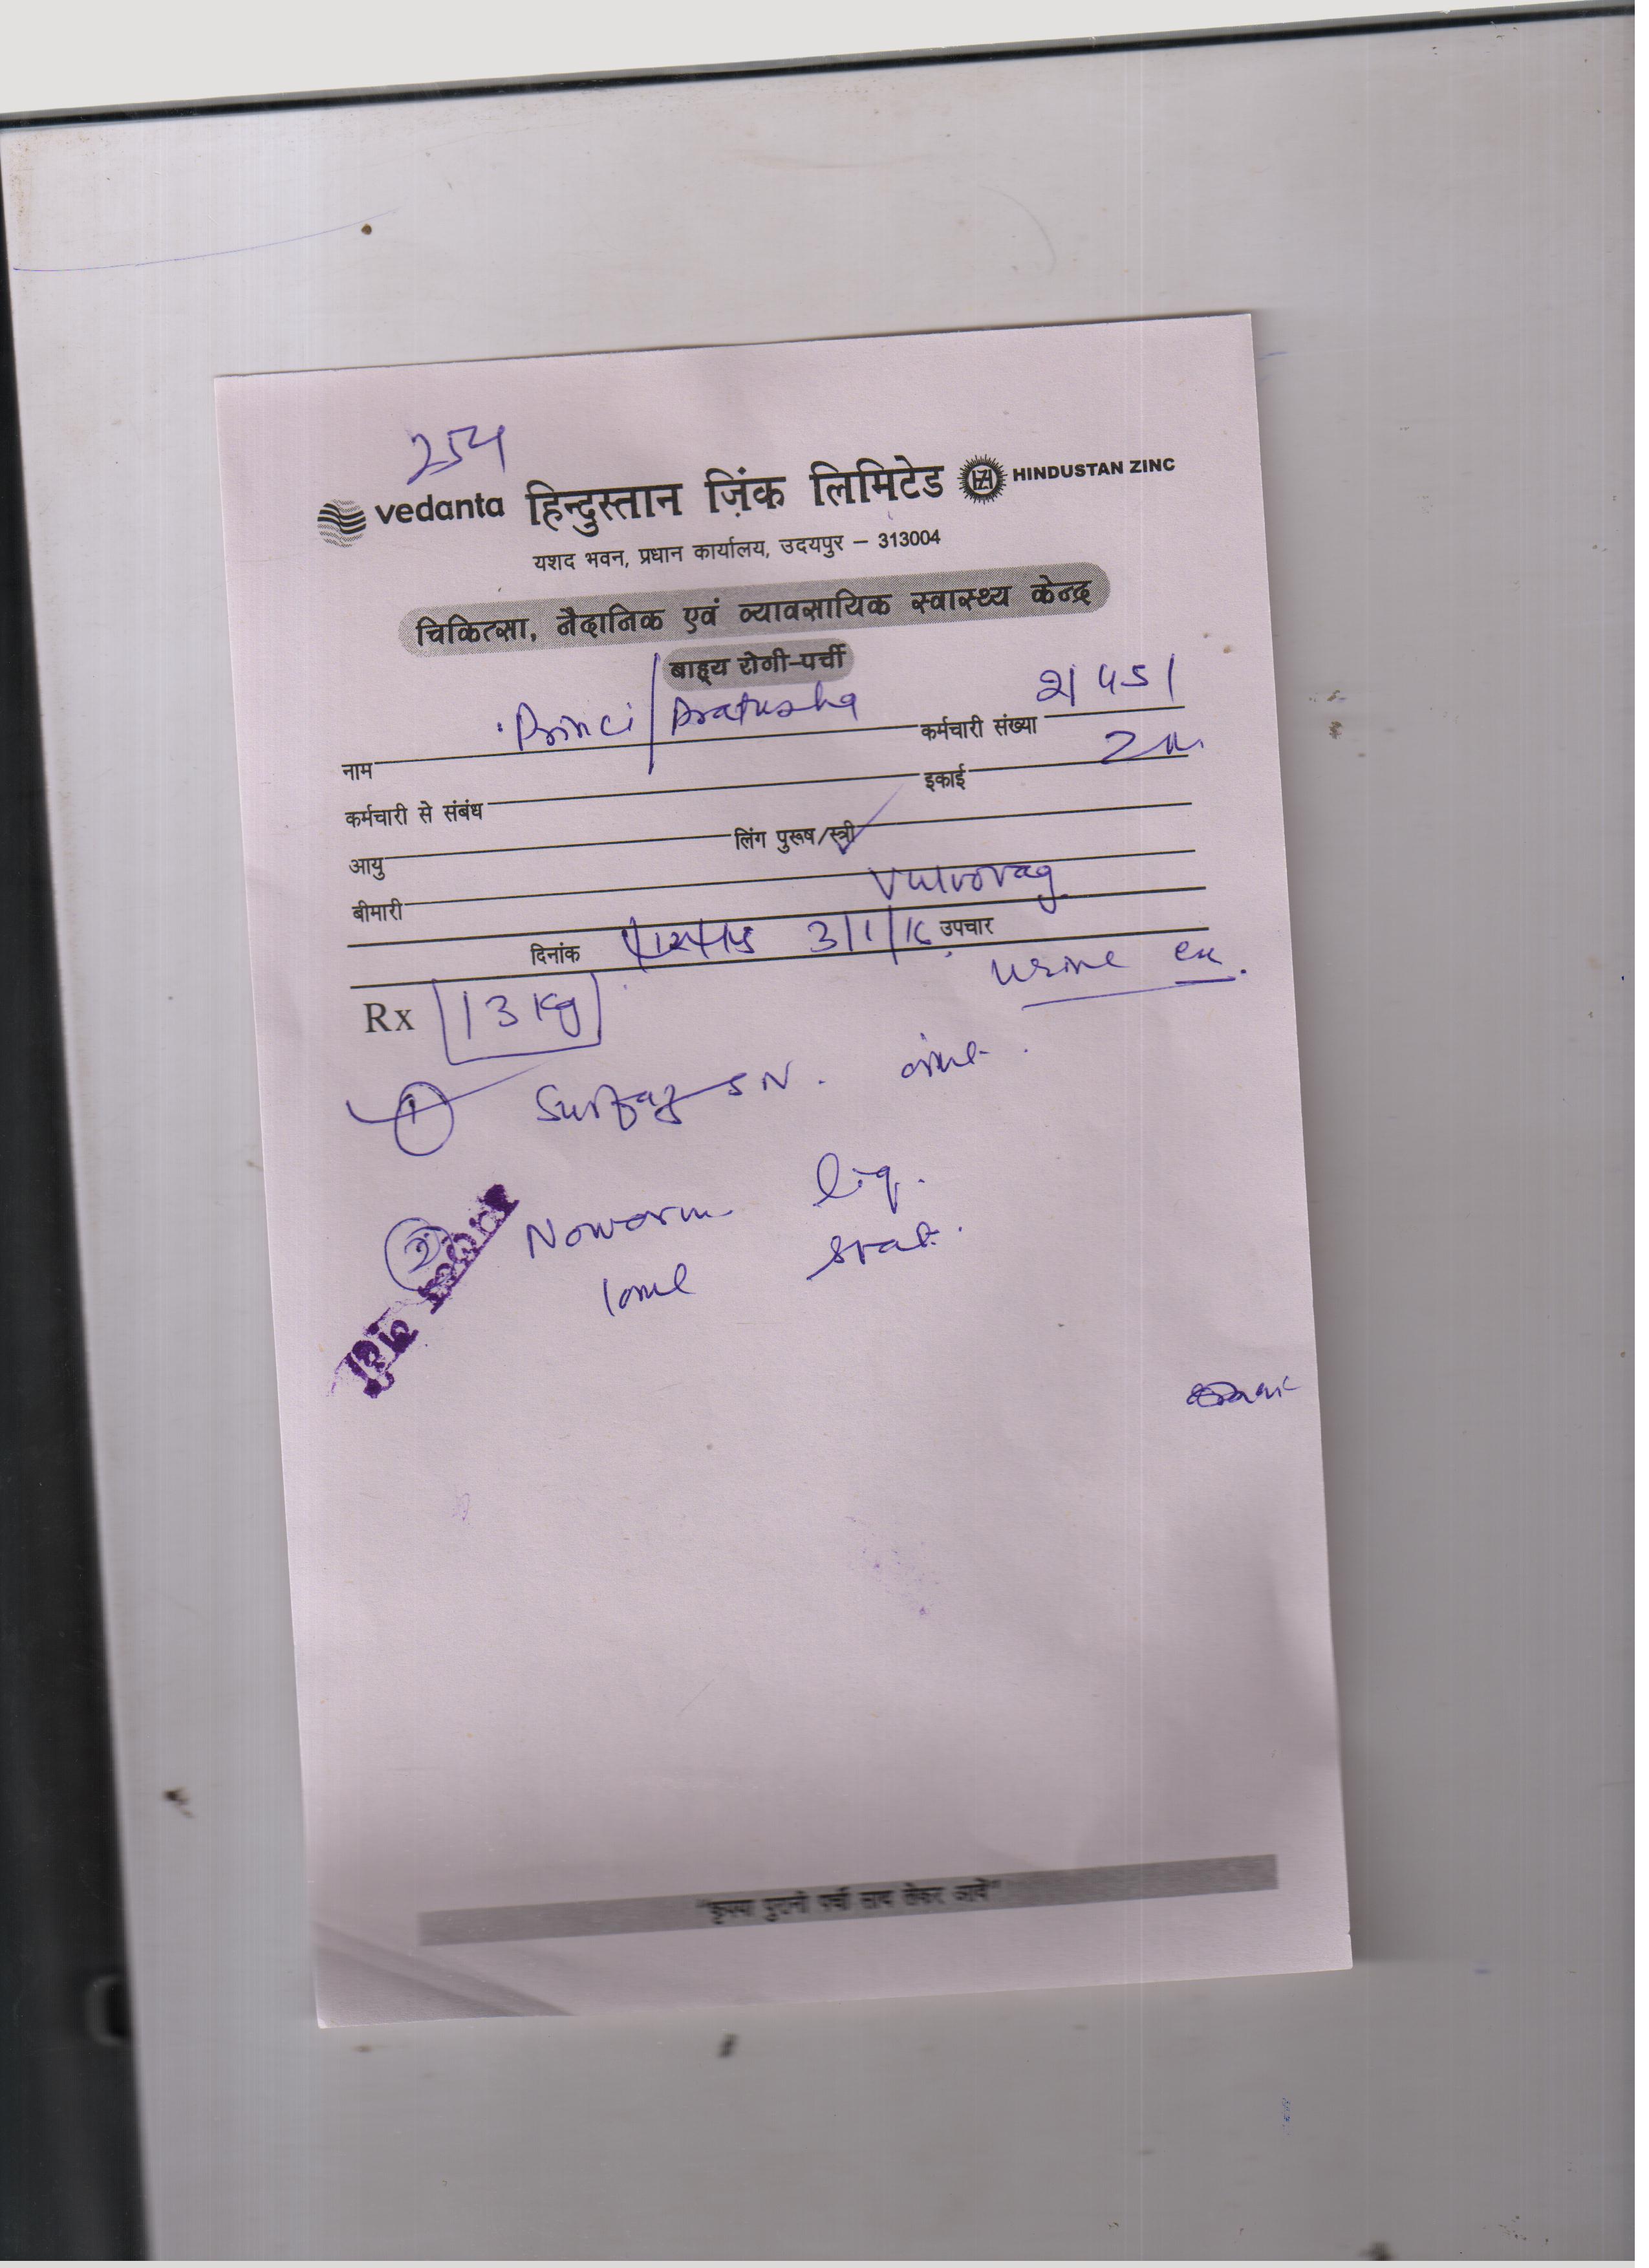 254
vedanta हिन्दुस्तान ज़िंक लिमिटेड HINDUSTAN ZINC
यशद भवन, प्रधान कार्यालय, उदयपुर – 313004
चिकित्सा, नैदानिक एवं व्यावसायिक स्वास्थ्य केन्द्र
बाह्य रोगी-पर्ची
नाम Princi / Pratusha कर्मचारी संख्या 21451
कर्मचारी से संबंध इकाई
आयु लिंग पुरूष/स्त्री
बीमारी Vulvovag
दिनांक 3/1/16 उपचार
Rx 13 Kg urine ex.
1 Surfaz SN. oint.
2 Noworm liq.
10ml stat.
"कृपया पुरानी पर्ची साथ लेकर आवें"